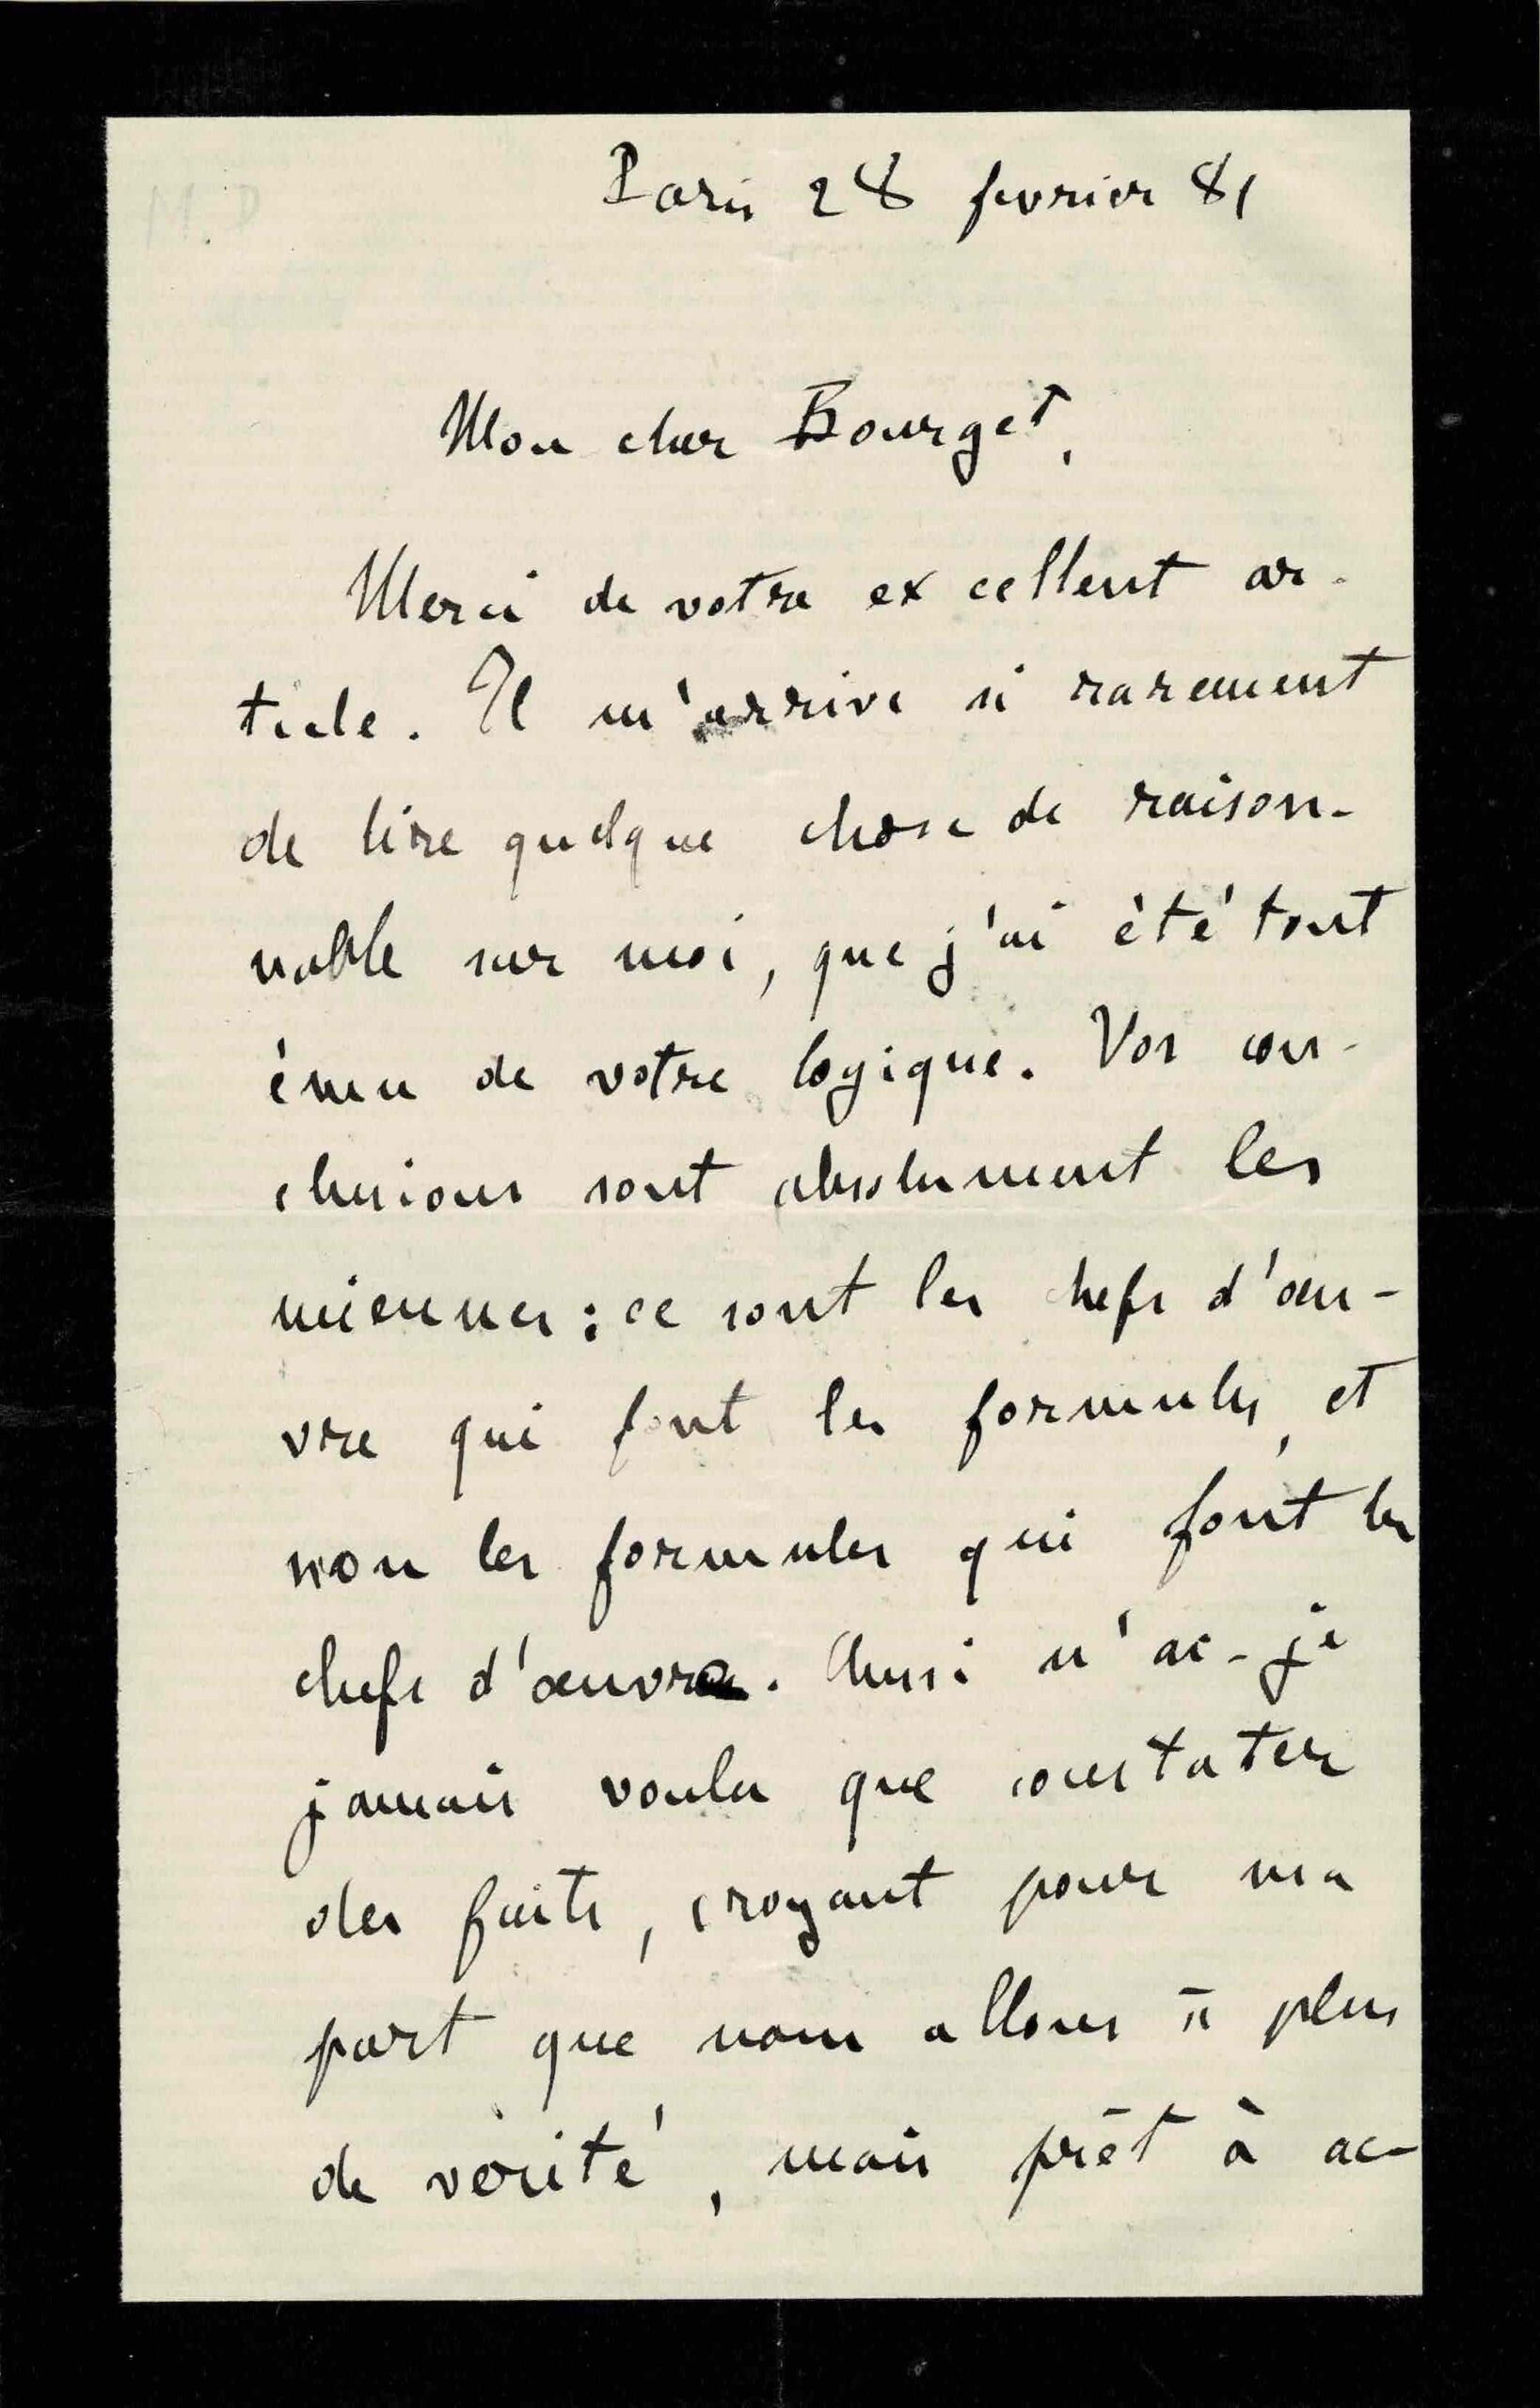 M. D
Paris 28 fevrier 81
Mon cher Bourget,
Merci de votre excellent ar-
ticle. Il m'arrive si rarement
de lire quelque chose de raison-
nable sur moi, que j'ai été tout
ému de votre logique. Vos con-
clusions sont absolument les
miennes : ce sont les chefs d'œu-
vre qui font les formules, et
non les formules qui font les
chefs d'œuvre. Aussi n'ai-je
jamais voulu que constater
des faits, croyant pour ma
part que nous allons à plus
de vérité, mais prêt à ac-